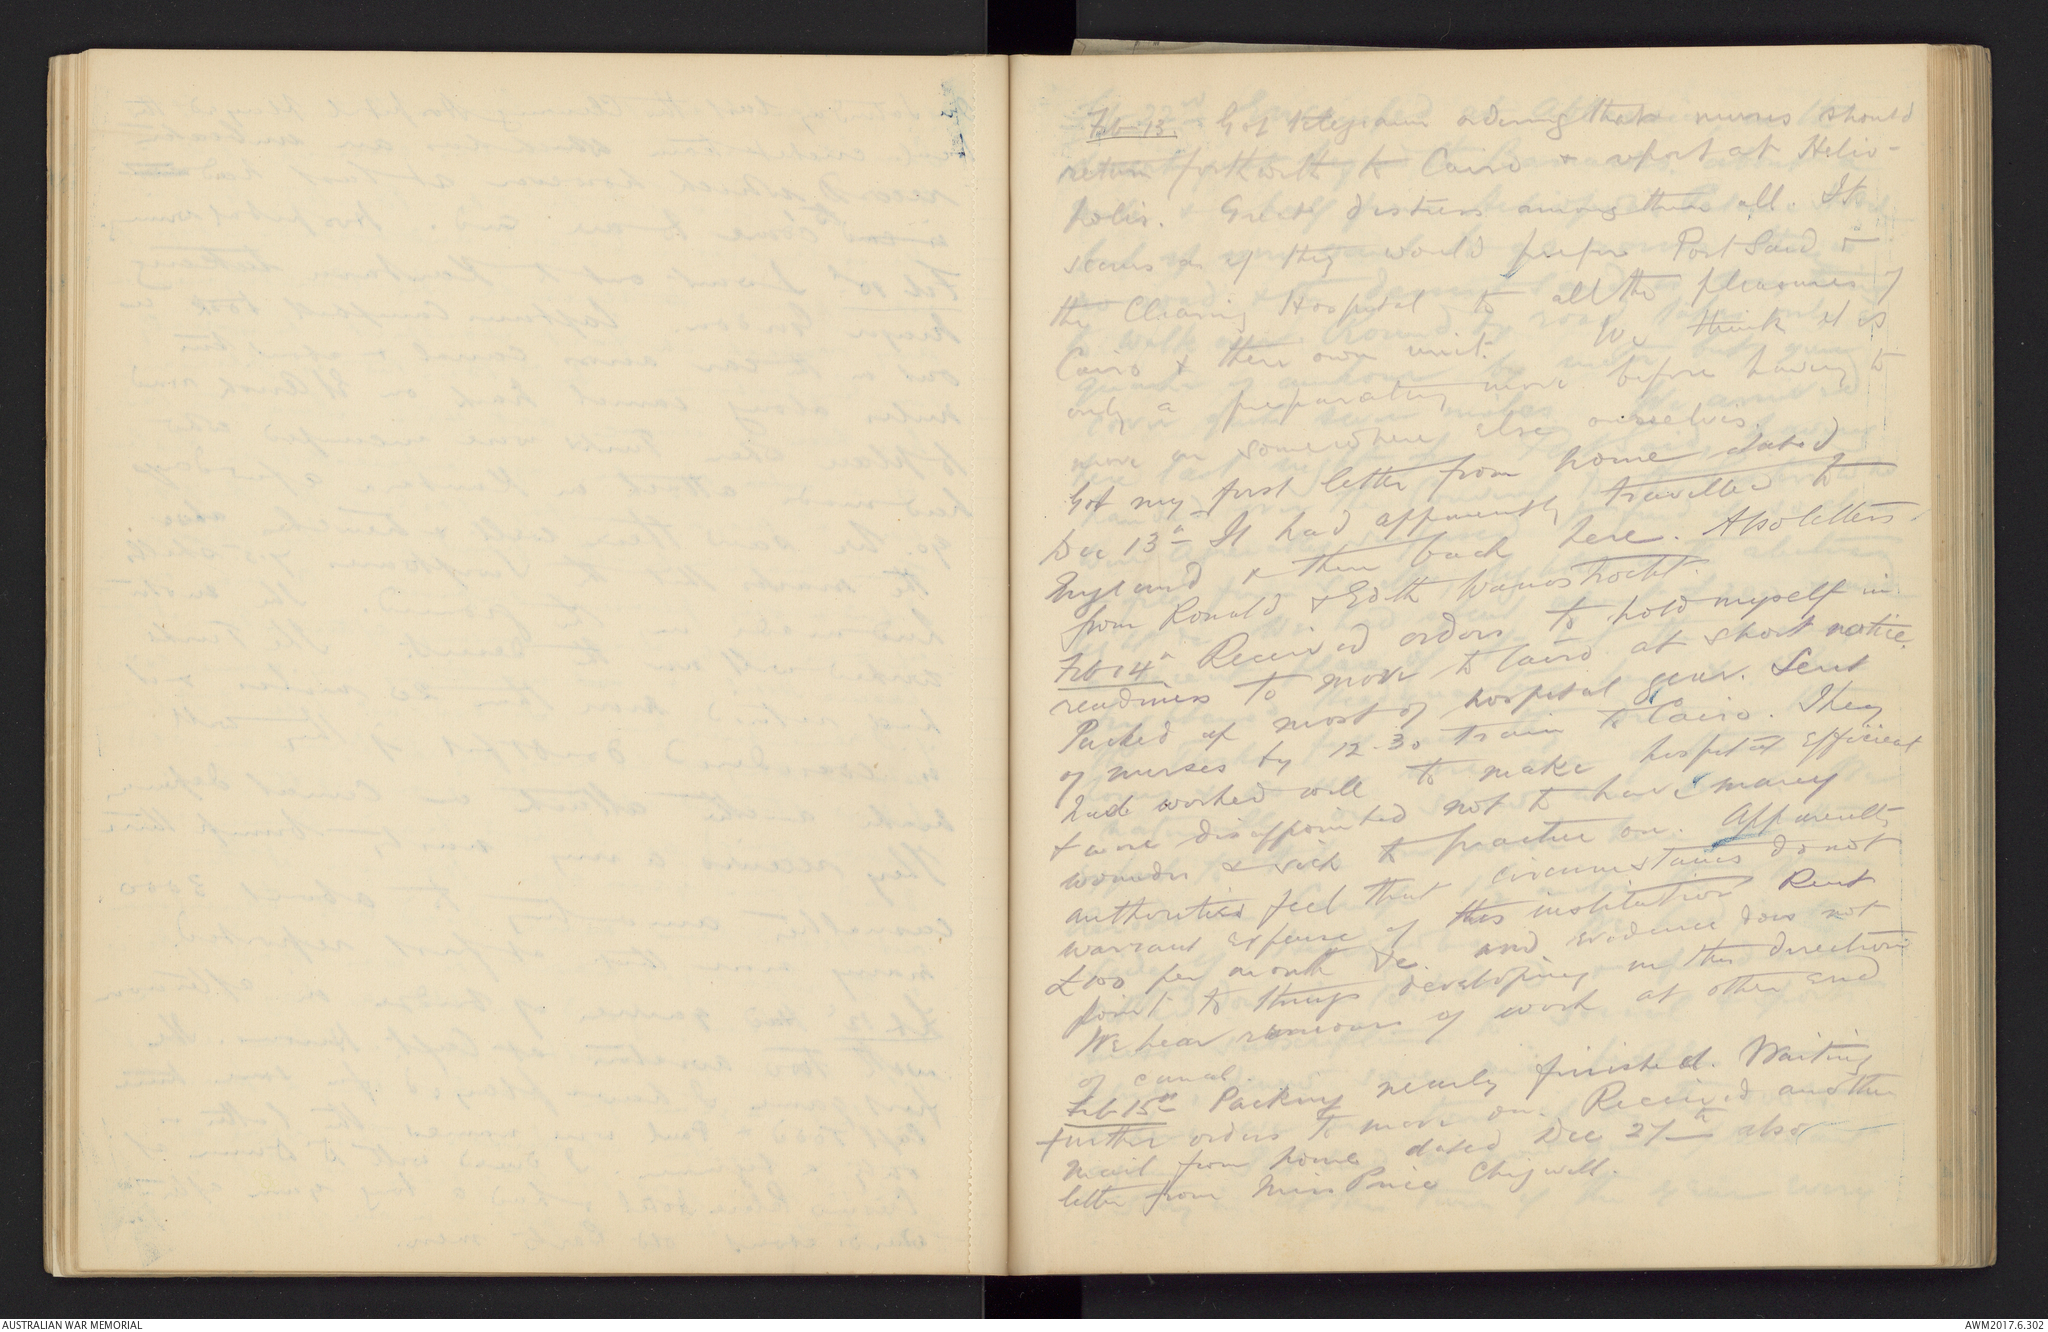 Feb 13. Got telegram ordering that nurses should
return forthwith to Cairo & report at Helio-
polis. Great distress among them all. It
seems as if they would prefer Port Said &
the Clearing Hospital to all the pleasures of
Cairo & there own unit. We think it is
only a preparatory move before having to
move on somewhere else ourselves.
Got my first letter from home dated
Dec 13th It had apparently travelled to
England & then back here. Also letters
from Ronald & Edith
Feb 14th Received orders to hold myself in
readiness to move to Cairo at short notice.
Packed up most of hospital gear. Sent
of nurses by 12.30 train to Cairo. They
had worked well to make hospital efficient
& were disappointed not to have many
wounded & sick to practice on. Apparently
authorities feel that circumstances do not
warrant expense of this institution Rent
£100 per month &c. and evidence does not
point to things developing in this direction
We hear rumours of work at other end
of canal.
Feb 15th Packing nearly finished. Waiting
further orders to move on. Received another
mail from home dated Dec 27th also
letter from Miss Price Chigwell.
AUSTRALIAN WAR MEMORIAL
AWM2017.6.302